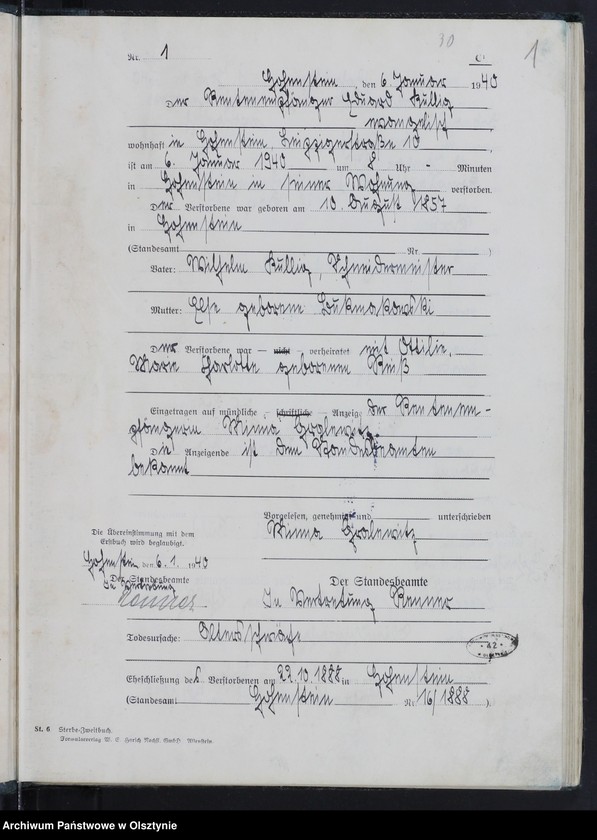 30
1
Nr. 1 C
Hohenstein, den 6. Januar 1940
Der Rentenempfänger Eduard Kullig
evangelisch
wohnhaft in Hohenstein, Leipzigerstraße 10
ist am 6. Januar 1940 um 2 Uhr - Minuten
in Hohenstein in seiner Wohnung verstorben.
Der Verstorbene war geboren am 10. August 1857
in Hohenstein
(Standesamt Nr. )
Vater: Wilhelm Kullig, Schneidermeister
Mutter: Else geborene
Der Verstorbene war — nicht — verheiratet mit Ottilie,
Marie Charlotte geborenen
Eingetragen auf mündliche — schriftliche — Anzeige der Rentenem-
pfängerin Minna Gralewitz
Die Anzeigende ist dem Standesbeamten
bekannt
Vorgelesen, genehmigt und unterschrieben
Minna Gralewitz
Die Übereinstimmung mit dem
Erstbuch wird beglaubigt.
Hohenstein, den 6.1. 1940
Der Standesbeamte
In Vertretung
Renner
Der Standesbeamte
In Vertretung Renner
Todesursache: Altersschwäche
42
Eheschließung des Verstorbenen am 22.10.1888 in Hohenstein
(Standesamt Hohenstein Nr. 16/1888 )
St. 6 Sterbe-Zweitbuch.
Formularverlag W. E. Harich Nachfl. GmbH. Allenstein.
Archiwum Państwowe w Olsztynie